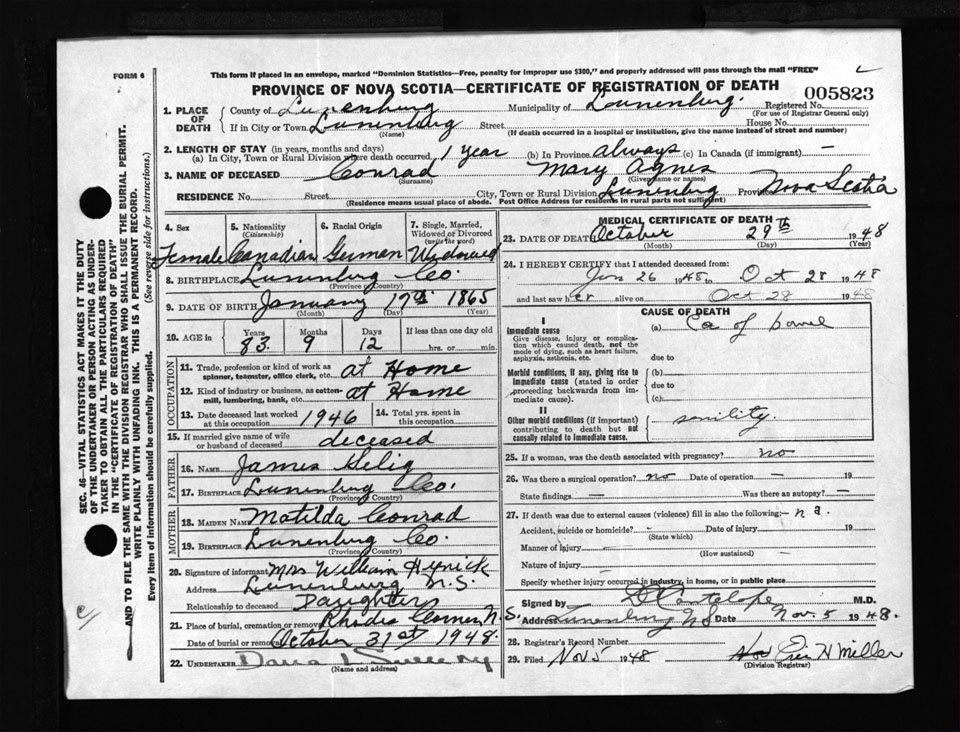 FORM 6
This form if placed in an envelope, marked "Dominion Statistics—Free, penalty for improper use $300," and properly addressed will pass through the mail "FREE"
PROVINCE OF NOVA SCOTIA—CERTIFICATE OF REGISTRATION OF DEATH
005823
1. PLACE OF DEATH
County of Lunenburg Municipality of Lunenburg. Registered No.
(For use of Registrar General only)
If in City or Town Lunenburg Street House No.
(Name) (If death occurred in a hospital or institution, give the name instead of street and number)
2. LENGTH OF STAY (in years, months and days)
(a) In City, Town or Rural Division where death occurred. 1 year (b) In Province always (c) In Canada (if immigrant) —
3. NAME OF DECEASED Conrad Mary Agnes
(Surname) (Given name or names)
RESIDENCE No. Street City, Town or Rural Division Lunenburg Province Nova Scotia
(Residence means usual place of abode. Post Office Address for residents in rural parts not sufficient)
4. Sex 5. Nationality (Citizenship) 6. Racial Origin 7. Single, Married, Widowed or Divorced (write the word)
Female Canadian German Widowed
8. BIRTHPLACE Lunenburg Co.
(Province or Country)
9. DATE OF BIRTH January 17th 1865
(Month) (Day) (Year)
10. AGE in Years Months Days If less than one day old
83 9 12 hrs. or min.
OCCUPATION
11. Trade, profession or kind of work as spinner, teamster, office clerk, etc. at Home
12. Kind of industry or business, as cotton-mill, lumbering, bank, etc. at Home
13. Date deceased last worked at this occupation 1946 14. Total yrs. spent in this occupation
15. If married give name of wife or husband of deceased deceased
FATHER
16. NAME James Selig
17. BIRTHPLACE Lunenburg Co.
(Province or Country)
MOTHER
18. MAIDEN NAME Matilda Conrad
19. BIRTHPLACE Lunenburg Co.
(Province or Country)
20. Signature of informant Mrs William
Address Lunenburg N.S.
Relationship to deceased Daughter
21. Place of burial, cremation or removal Rhodes Corner N.S.
Date of burial or removal October 31st 1948.
22. UNDERTAKER
(Name and address)
MEDICAL CERTIFICATE OF DEATH
23. DATE OF DEATH October 29th 1948
(Month) (Day) (Year)
24. I HEREBY CERTIFY that I attended deceased from:
Jan 26 1948 to Oct 28 1948
and last saw her alive on Oct 28 1948
CAUSE OF DEATH
I
Immediate cause
Give disease, injury or complication which caused death, not the mode of dying, such as heart failure, asphyxia, asthenia, etc.
(a) Ca of bowel
due to
Morbid conditions, if any, giving rise to immediate cause (stated in order proceeding backwards from immediate cause).
(b)
due to
(c)
II
Other morbid conditions (if important) contributing to death but not causally related to immediate cause.
senility.
25. If a woman, was the death associated with pregnancy? no
26. Was there a surgical operation? no Date of operation — 19
State findings — Was there an autopsy? —
27. If death was due to external causes (violence) fill in also the following:— n a.
Accident, suicide or homicide? - Date of injury 19
(State which)
Manner of injury -
(How sustained)
Nature of injury -
Specify whether injury occurred in industry, in home, or in public place
Signed by M.D.
Address Lunenburg NS Date Nov. 5 1948.
28. Registrar's Record Number
29. Filed Nov 5 1948 H Miller
(Division Registrar)
SEC. 46—VITAL STATISTICS ACT MAKES IT THE DUTY OF THE UNDERTAKER OR PERSON ACTING AS UNDERTAKER TO OBTAIN ALL THE PARTICULARS REQUIRED IN THE "CERTIFICATE OF REGISTRATION OF DEATH"
AND TO FILE THE SAME WITH THE DIVISION REGISTRAR WHO SHALL ISSUE THE BURIAL PERMIT.
WRITE PLAINLY WITH UNFADING INK. THIS IS A PERMANENT RECORD.
Every item of information should be carefully supplied. (See reverse side for instructions.)